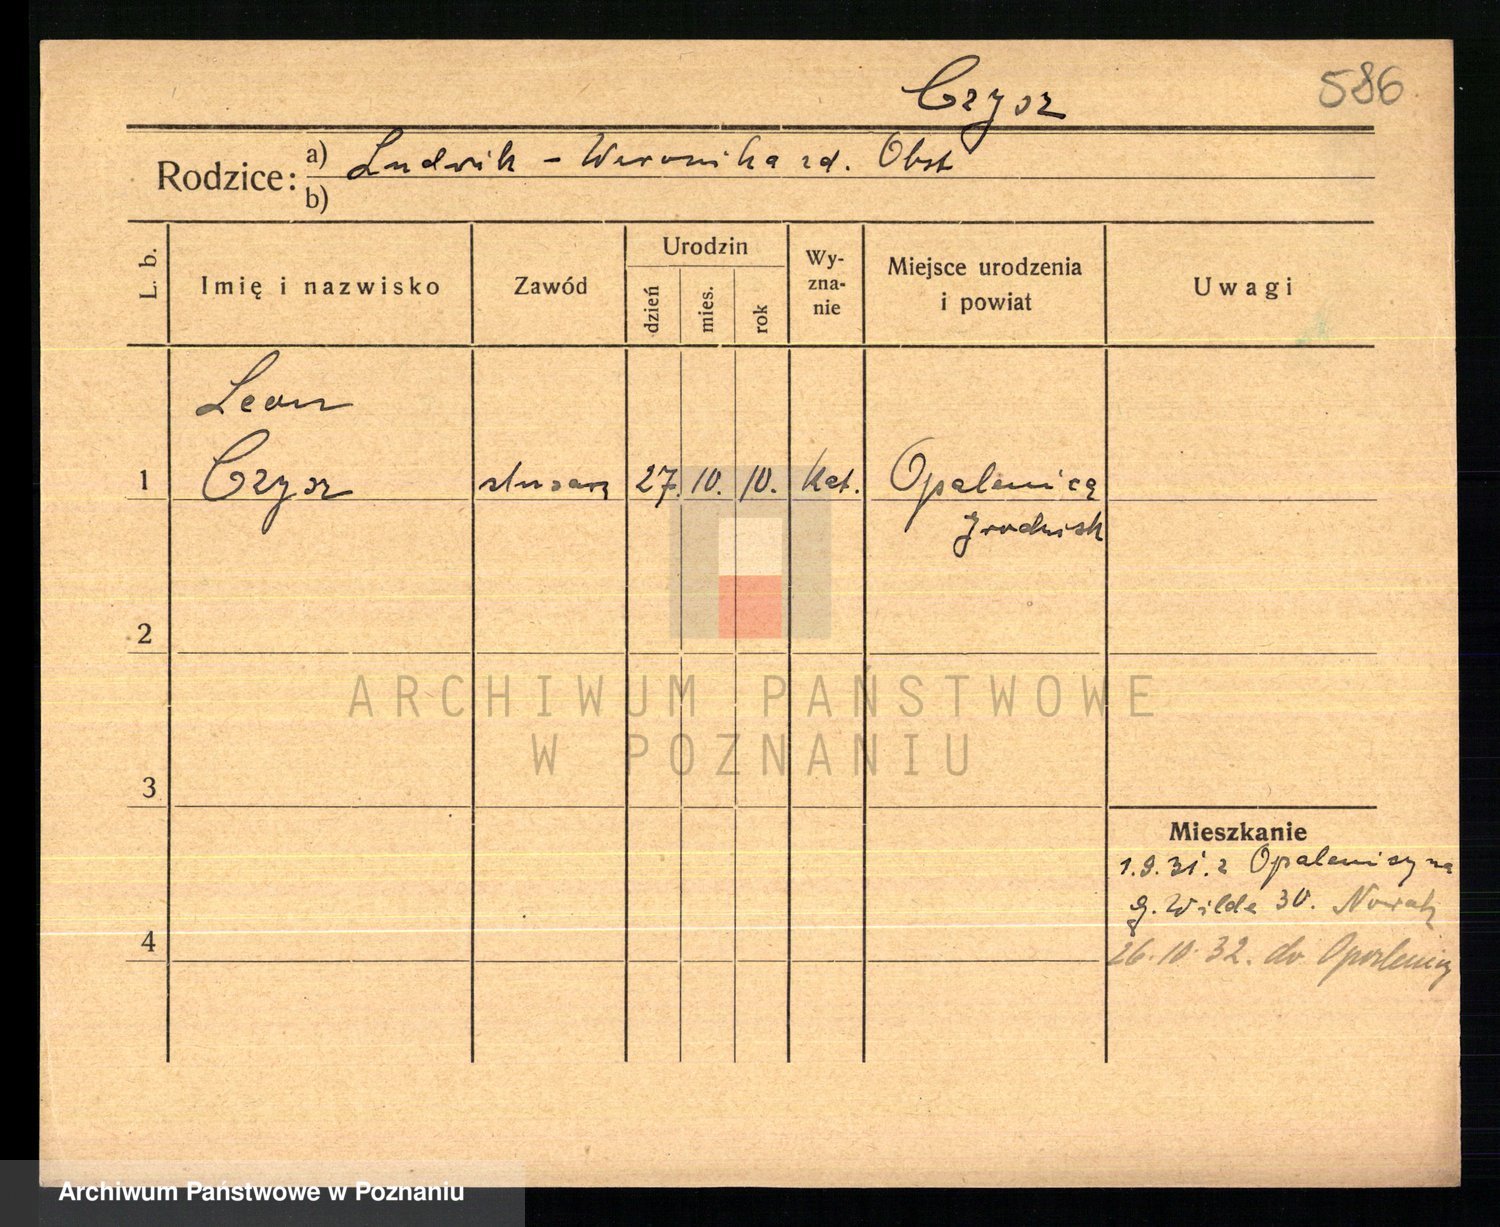 Czysz
586
Rodzice:
a) Ludwik - Weronika zd. Obst
b)
L. b.
Imię i nazwisko
Zawód
Urodzin
dzień
mies.
rok
Wy-
zna-
nie
Miejsce urodzenia
i powiat
Uwagi
Leon
1 Czysz ślusarz 27. 10. 10. kat. Opalenica
Grodzisk
2
3
4
Mieszkanie
1.9.31. z Opalenicy na
G. Wilda 30. Nowak
26.10.32. do Opalenicy
ARCHIWUM PAŃSTWOWE
W POZNANIU
Archiwum Państwowe w Poznaniu